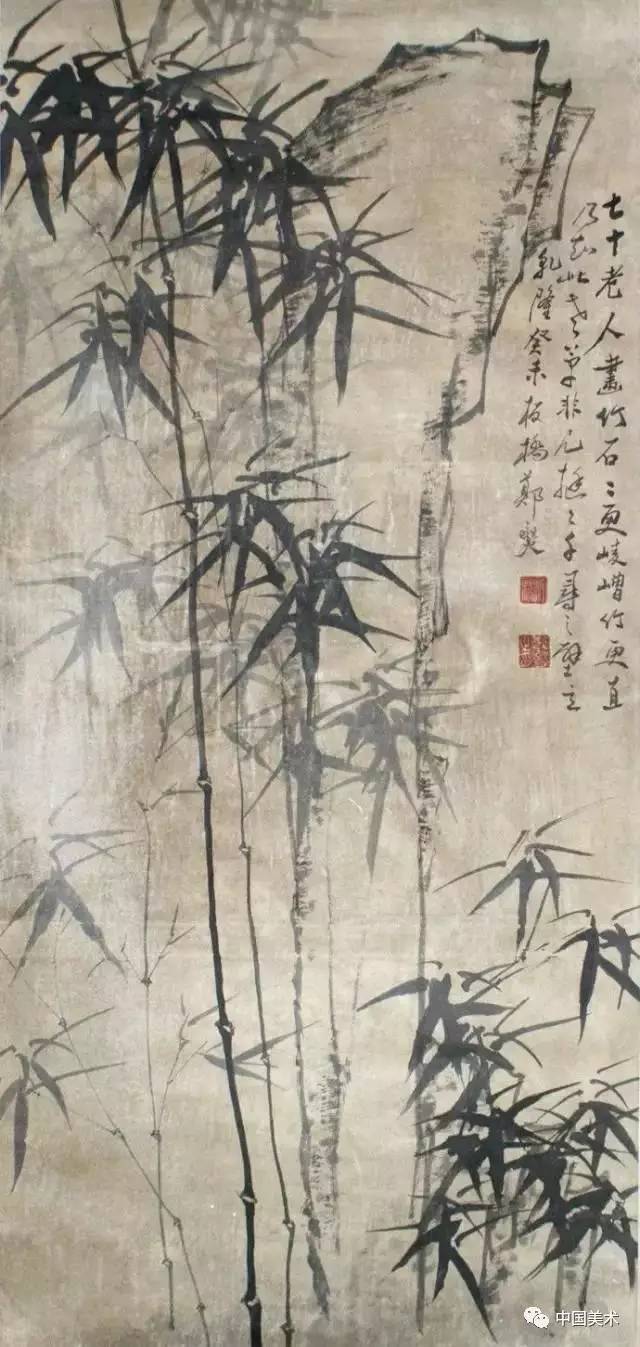 七十老人畫竹石〻更崚嶒竹更直
乃知此老筆非凡挺〻千尋之壁立
乾隆癸未板橋鄭燮
中国美术